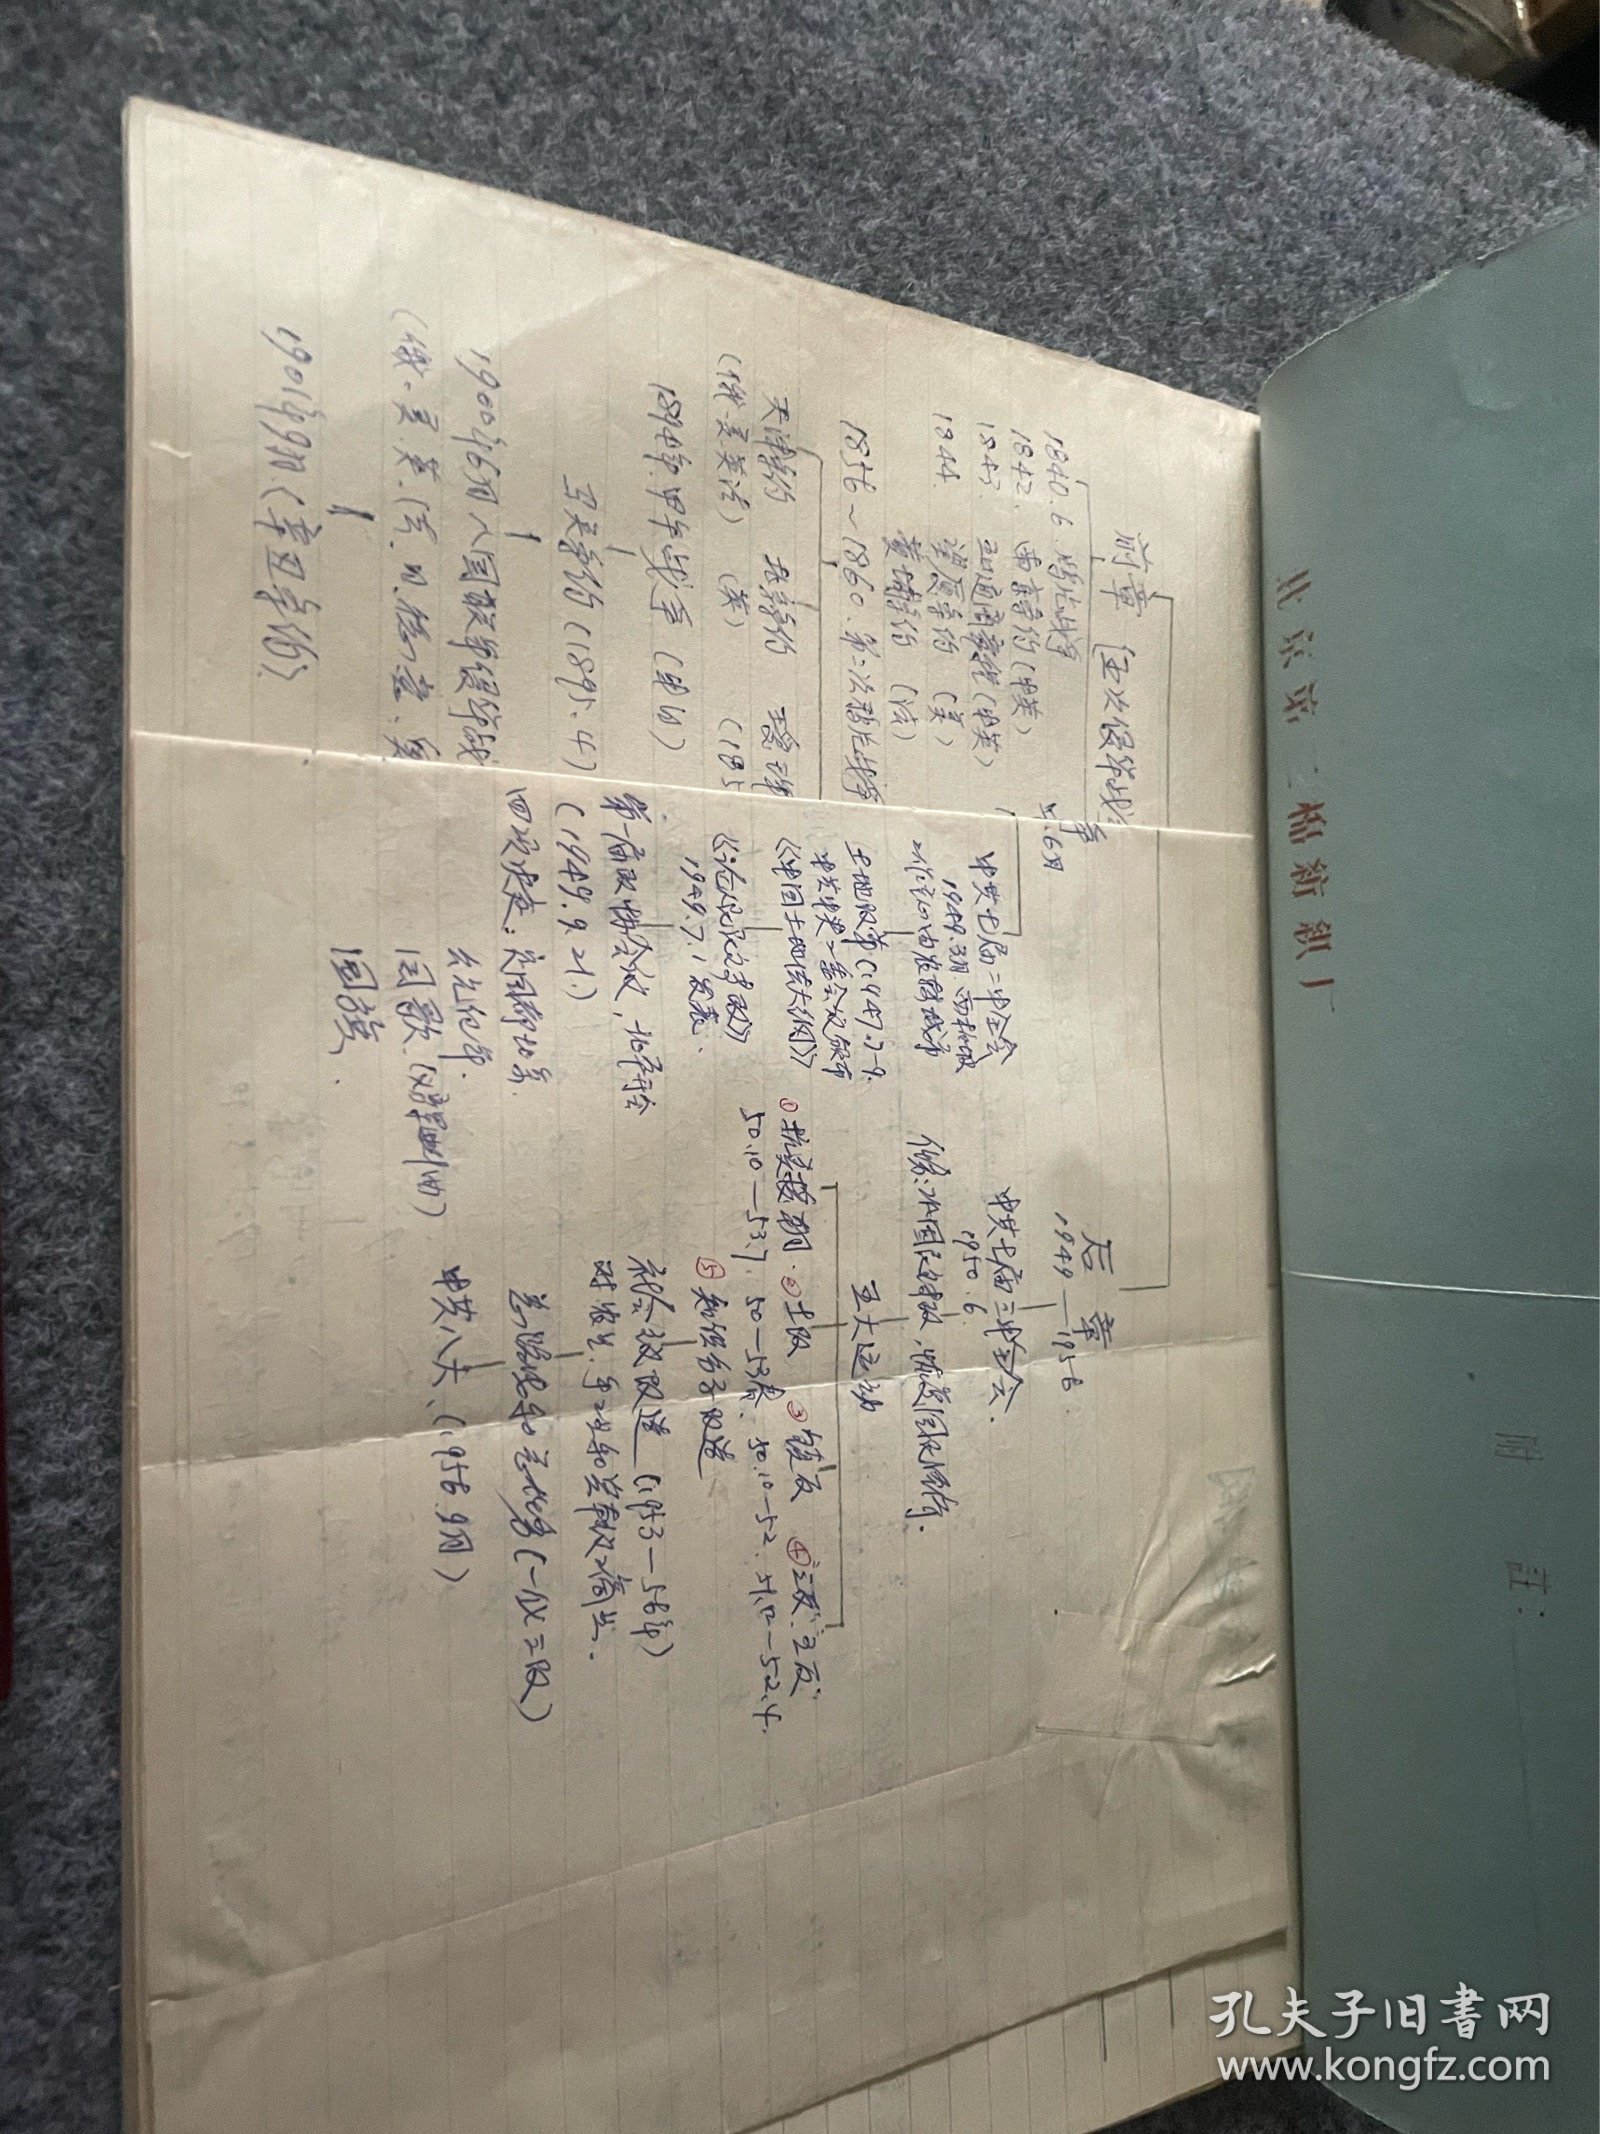 北京京二稿新紙厂
附 註：
前章 五次侵华战争
1840.6.鸦片战争
1842. 南京条约（中英）
1843. 五口通商章程（中英）
1844. 望厦条约（美）
黄埔条约（法）
1856～1860.第二次鸦片战争
天津条约 北京条约 瑷珲
（俄.美英法）（英）（185
1894年.甲午战争（中日）
马关条约（1895.4）
1900年6月八国联军侵华战
（俄.美.英.法.日.德.意.奥
1901年9月.（辛丑条约）
中共七届二中全会
1949.3月 西柏坡
工作重心由农村到城市
土地改革（1947.7-9.
《中国土地法大纲》
《论人民民主专政》
1949.7.1发表.
第一届政协会议，北平开会
（1949.9.21.）
四项决定：定国都北京
公元纪年.
国歌（义勇军进行曲）
国旗、
后章
1949—1956
中共七届三中全会.
1950.6.
五大运动
①抗美援朝.②土改 ③镇反 ④“三反”.五反”
50.10—53.7. 50—53春. 50.10—52. 51.12—52.4.
⑤知识分子改造
社会主义改造（1953—56年）
对农业.手工业和资本主义工商业.
总路线和总任务（一化三改）
中共八大、（1956.9月）
孔夫子旧书网
www.kongfz.com